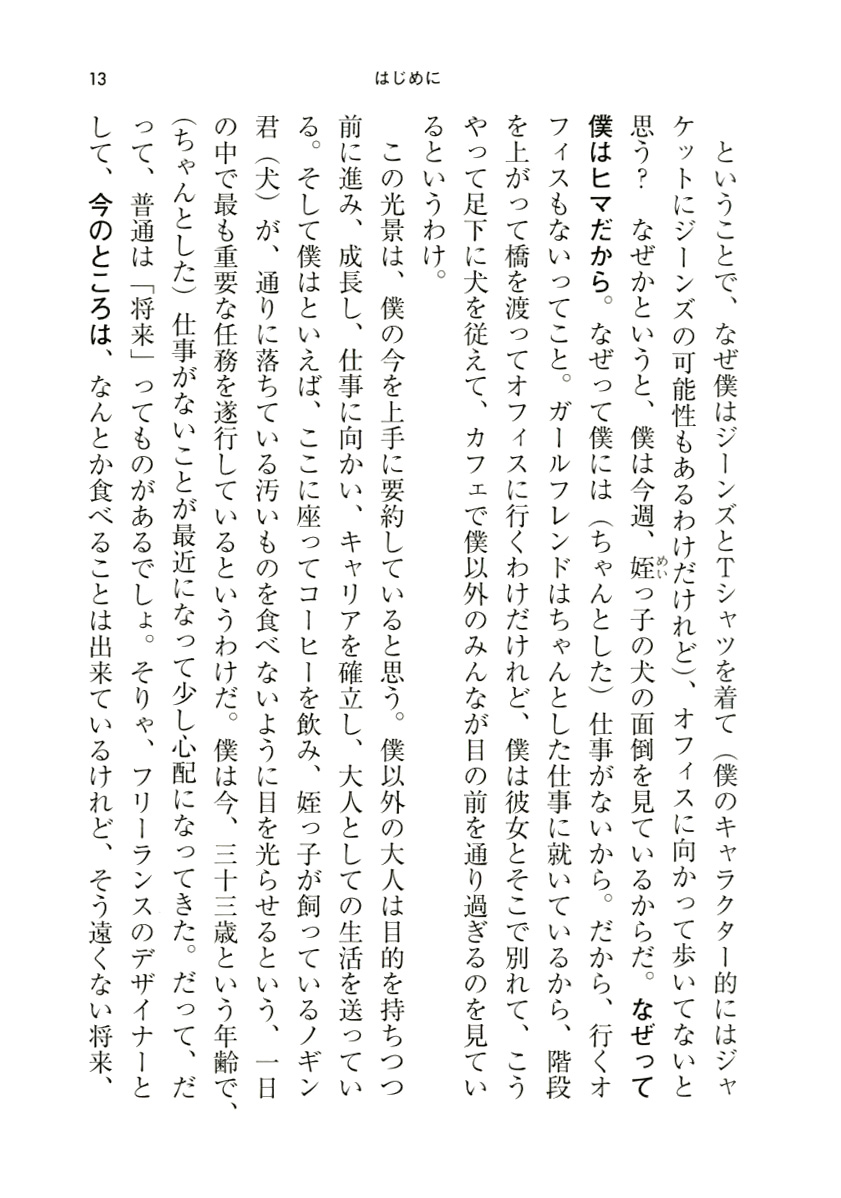 13
はじめに
　ということで、なぜ僕はジーンズとTシャツを着て（僕のキャラクター的にはジャ
ケットにジーンズの可能性もあるわけだけれど）、オフィスに向かって歩いてないと
思う？　なぜかというと、僕は今週、姪っ子の犬の面倒を見ているからだ。なぜって
めい
僕はヒマだから。なぜって僕には（ちゃんとした）仕事がないから。だから、行くオ
フィスもないってこと。ガールフレンドはちゃんとした仕事に就いているから、階段
を上がって橋を渡ってオフィスに行くわけだけれど、僕は彼女とそこで別れて、こう
やって足下に犬を従えて、カフェで僕以外のみんなが目の前を通り過ぎるのを見てい
るというわけ。
　この光景は、僕の今を上手に要約していると思う。僕以外の大人は目的を持ちつつ
前に進み、成長し、仕事に向かい、キャリアを確立し、大人としての生活を送ってい
る。そして僕はといえば、ここに座ってコーヒーを飲み、姪っ子が飼っているノギン
君（犬）が、通りに落ちている汚いものを食べないように目を光らせるという、一日
の中で最も重要な任務を遂行しているというわけだ。僕は今、三十三歳という年齢で、
（ちゃんとした）仕事がないことが最近になって少し心配になってきた。だって、だ
って、普通は「将来」ってものがあるでしょ。そりゃ、フリーランスのデザイナーと
して、今のところは、なんとか食べることは出来ているけれど、そう遠くない将来、